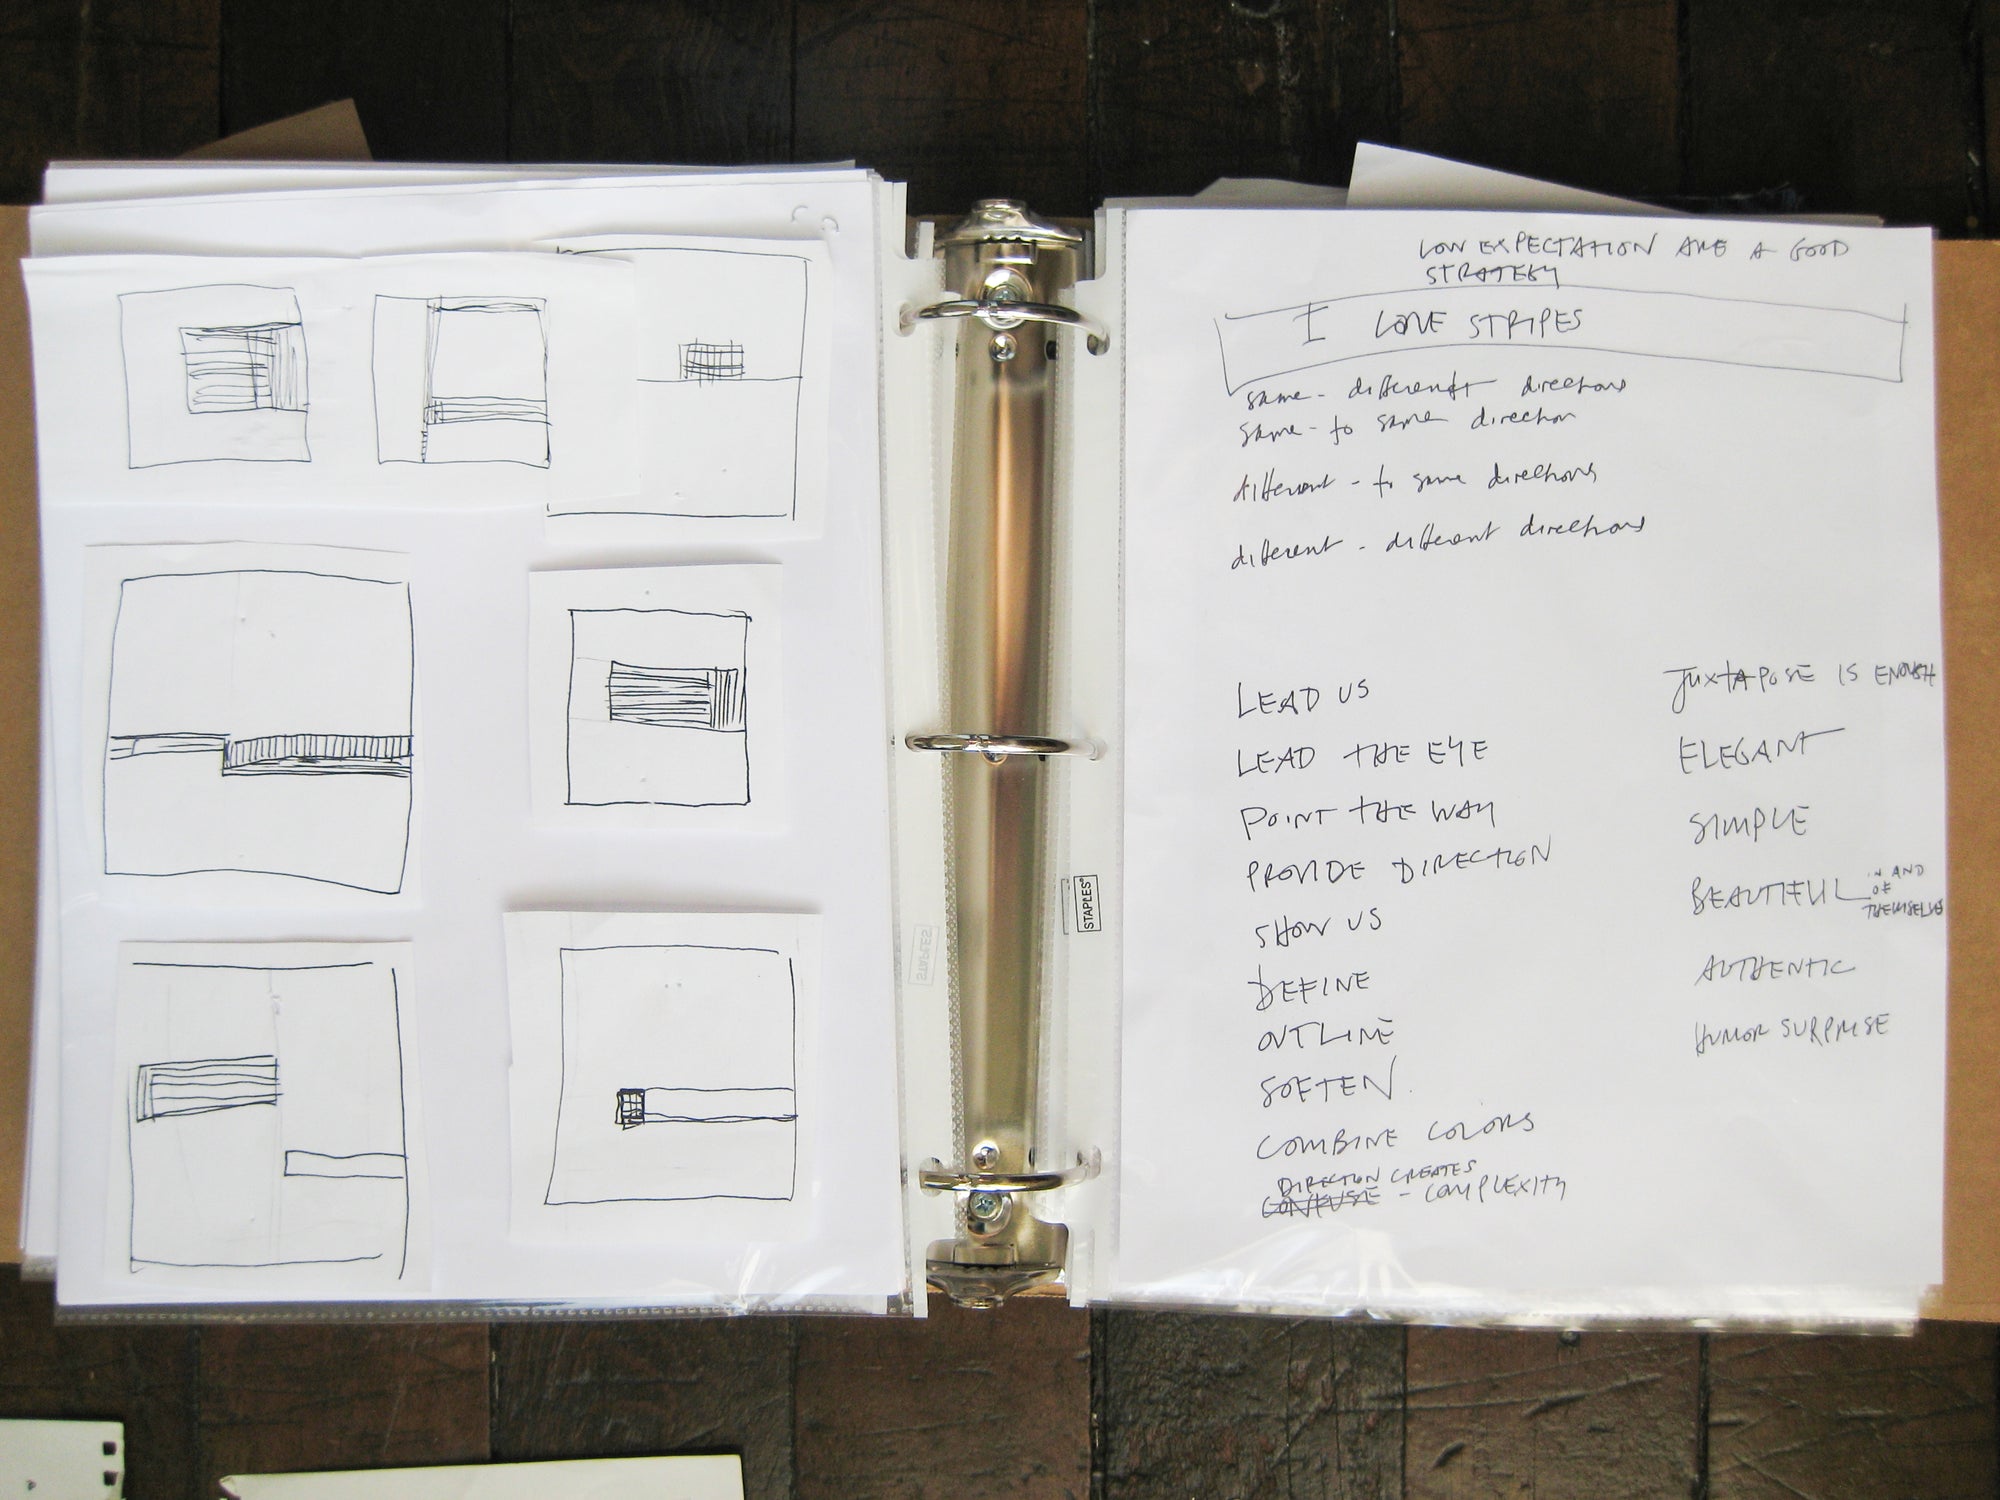 LOW EXPECTATION ARE A GOOD
STRATEGY
I LOVE STRIPES
same - different directions
same - to same direction
different - to same directions
different - different directions
LEAD US
LEAD THE EYE
POINT THE WAY
PROVIDE DIRECTION
SHOW US
DEFINE
OUTLINE
SOFTEN
COMBINE COLORS
DIRECTION CREATES
CONFUSE - COMPLEXITY
JUXTAPOSE IS ENOUGH
ELEGANT
SIMPLE
BEAUTIFUL IN AND
OF
THEMSELVES
AUTHENTIC
HUMOR SURPRISE
STAPLES®
STAPLES